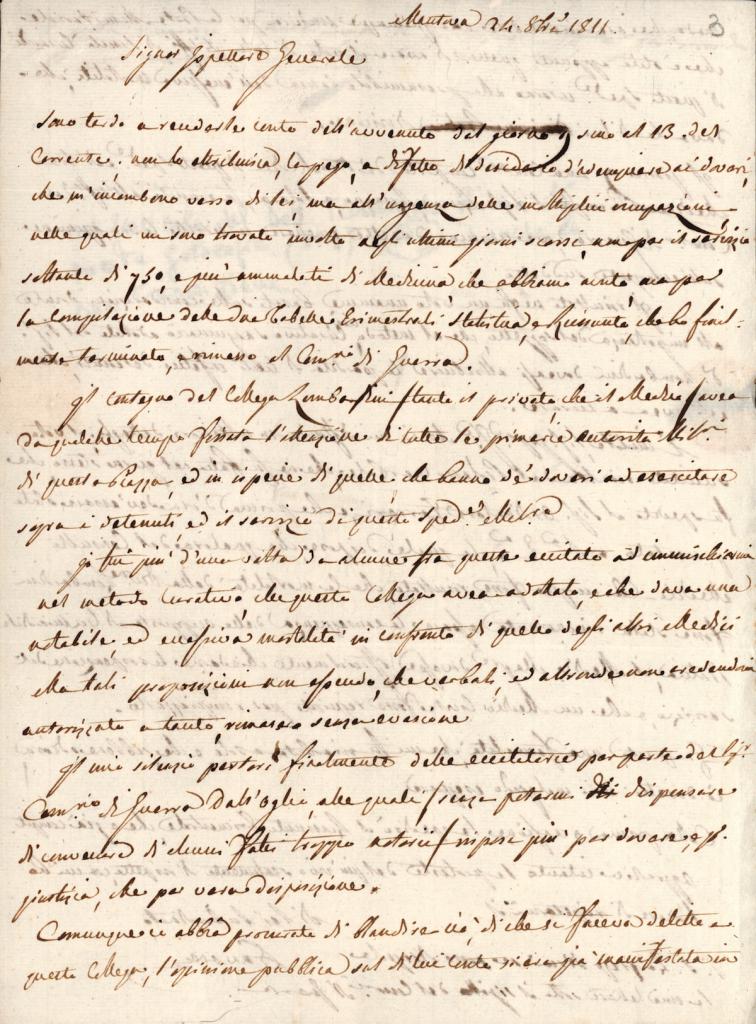 Mantova 24 8bre 1811.
3
Signor Ispettore Generale
Sono tardo a renderle conto dell'avvenuto dal giorno 9 sino al 13 del
Corrente; non lo attribuisca, la prego, a difetto di desiderio d'adempiere ai doveri,
che m'incombono verso di lei, ma all'urgenza delle moltiplici occupazioni
nelle quali mi sono trovato involto negli ultimi giorni scorsi, non per il servizio
soltanto di 750, e più ammalati di Medicina, che abbiamo avuto, ma per
la Compilazione delle due Tabelle Trimestrali, Statistica, e Riassunto, che ho final-
mente terminato, e rimesso al Comrio di Guerra.
Il contegno del Collega Lombardini /tanto il privato, che il Medico/ avea
da qualche tempo fissata l'attenzione di tutte le primarie autorità Milri
di questa Piazza, ed in ispecie di quelle, che hanno de' doveri ad esercitare
sopra i detenuti, ed il servizio di questo Sped.e Milre
Io fui più d'una volta da alcune fra queste eccitato ad immischiarmi
nel metodo Curativo, che questo Collega avea adottato, e che dava una
notabile, ed eccessiva mortalità in confronto di quello degli altri Medici
Ma tali proposizioni non essendo, che verbali, ed altronde non credendomi
autorizzato a tanto, rimasero senza evasione
Il mio silenzio portò finalmente delle eccitatorie per parte del Sigr
Comrio di Guerra Dall'Oglio, alle quali /senza potermi dispensare
di convenire di alcuni fatti troppo notorii/ risposi più per dovere, e pr
giustizia, che per vera disposizione.
Comunque io abbia procurato di blandire ciò, di che si faceva delitto a
questo Collega, l'opinione pubblica sul di lui conto si era già manifestata in